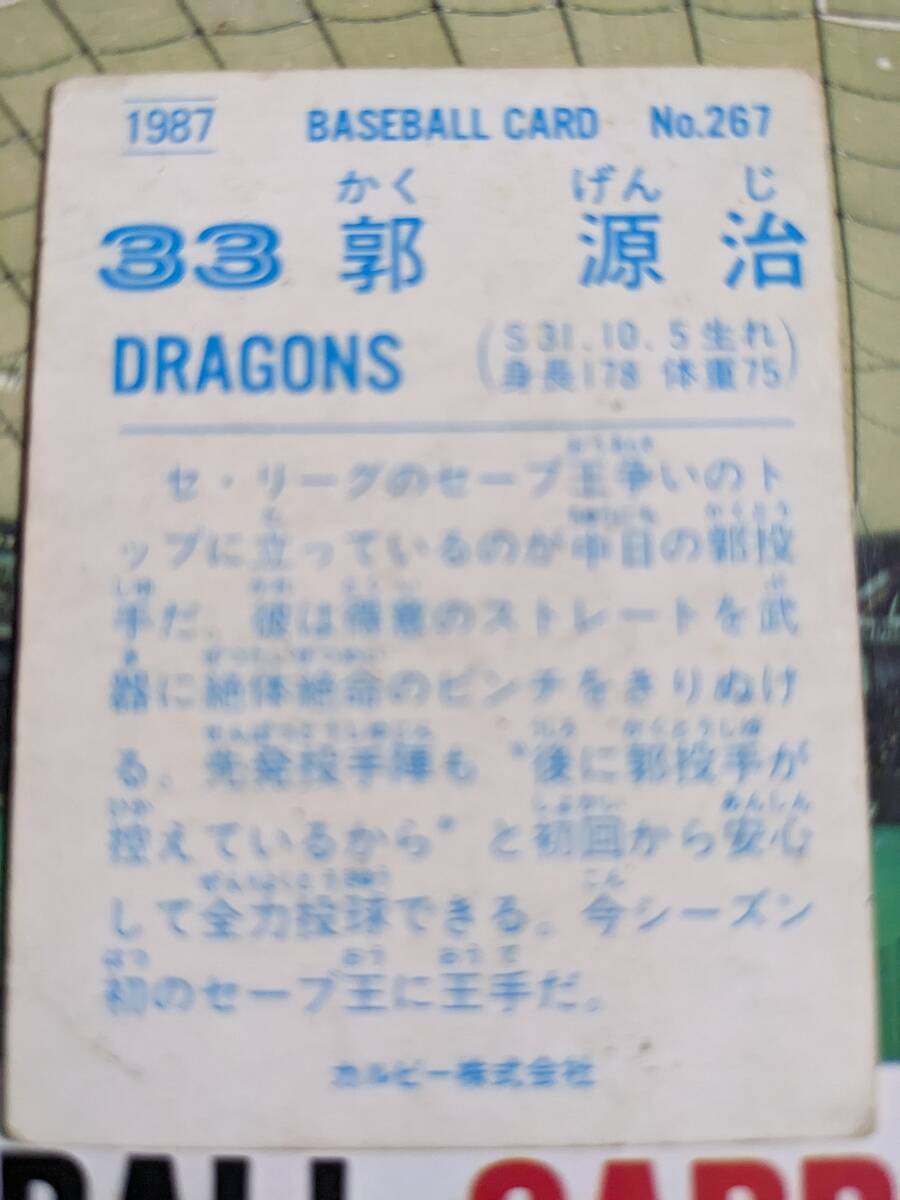 1987 BASEBALL CARD No.267
かく げん じ
33 郭 源 治
DRAGONS
(S31.10.5生れ
身長178 体重75)
セ・リーグのセーブ王争いのト
ップに立っているのが中日の郭投
手だ。彼は得意のストレートを武
器に絶体絶命のピンチをきりぬけ
る。先発投手陣も〝後に郭投手が
控えているから〟と初回から安心
して全力投球できる。今シーズン
初のセーブ王に王手だ。
カルビー株式会社
BALL CARD